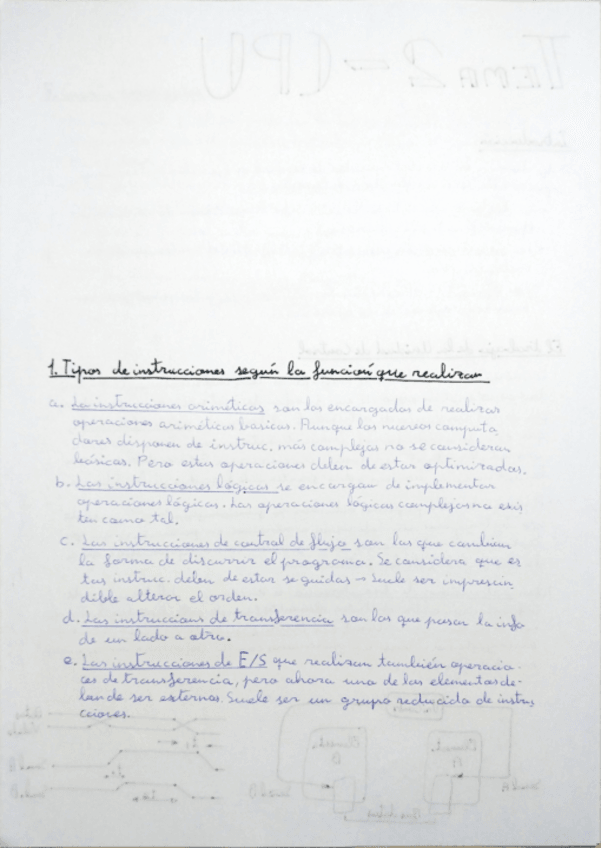 1. Tipos de instrucciones según la función que realizan
a. La instrucciones ariméticas son las encargadas de realizar
operaciones ariméticas básicas. Aunque los nuevos computa
dores disponen de instruc. más complejas no se consideran
básicas. Pero estas operaciones deben de estar optimizadas.
b. Las instrucciones lógicas se encargan de implementar
operaciones lógicas. Las operaciones lógicas complejas no exis
ten como tal.
c. Las instrucciones de control de flujo son las que cambian
la forma de discurrir el programa. Se considera que es
tas instruc. deben de estar seguidas → Suele ser imprescin
dible alterar el orden.
d. Las instruccions de transferencia son las que pasan la info
de un lado a otro.
e. Las instrucciones de E/S que realizan también operacio-
ces de transferencia, pero ahora uno de los elementos de-
ben de ser externos. Suele ser un grupo reducido de instru
cciones.
Tema 2 → CPU
Introducción